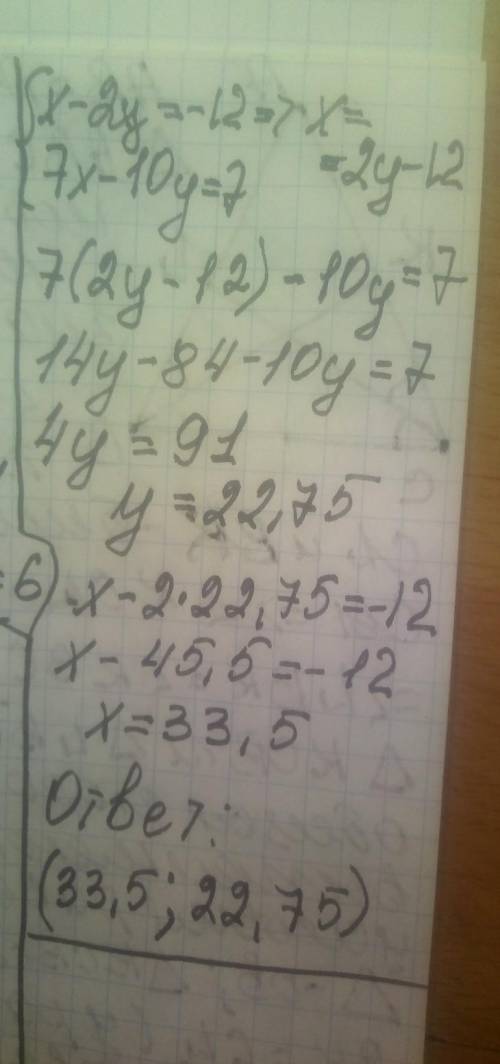 x-2y=-12=>x=
=2y-12
7x-10y=7
7(2y-12)-10y=7
14y-84-10y=7
4y=91
y=22,75
=6)
x-2·22,75=-12
x-45,5=-12
x=33,5
Ответ:
(33,5; 22,75)